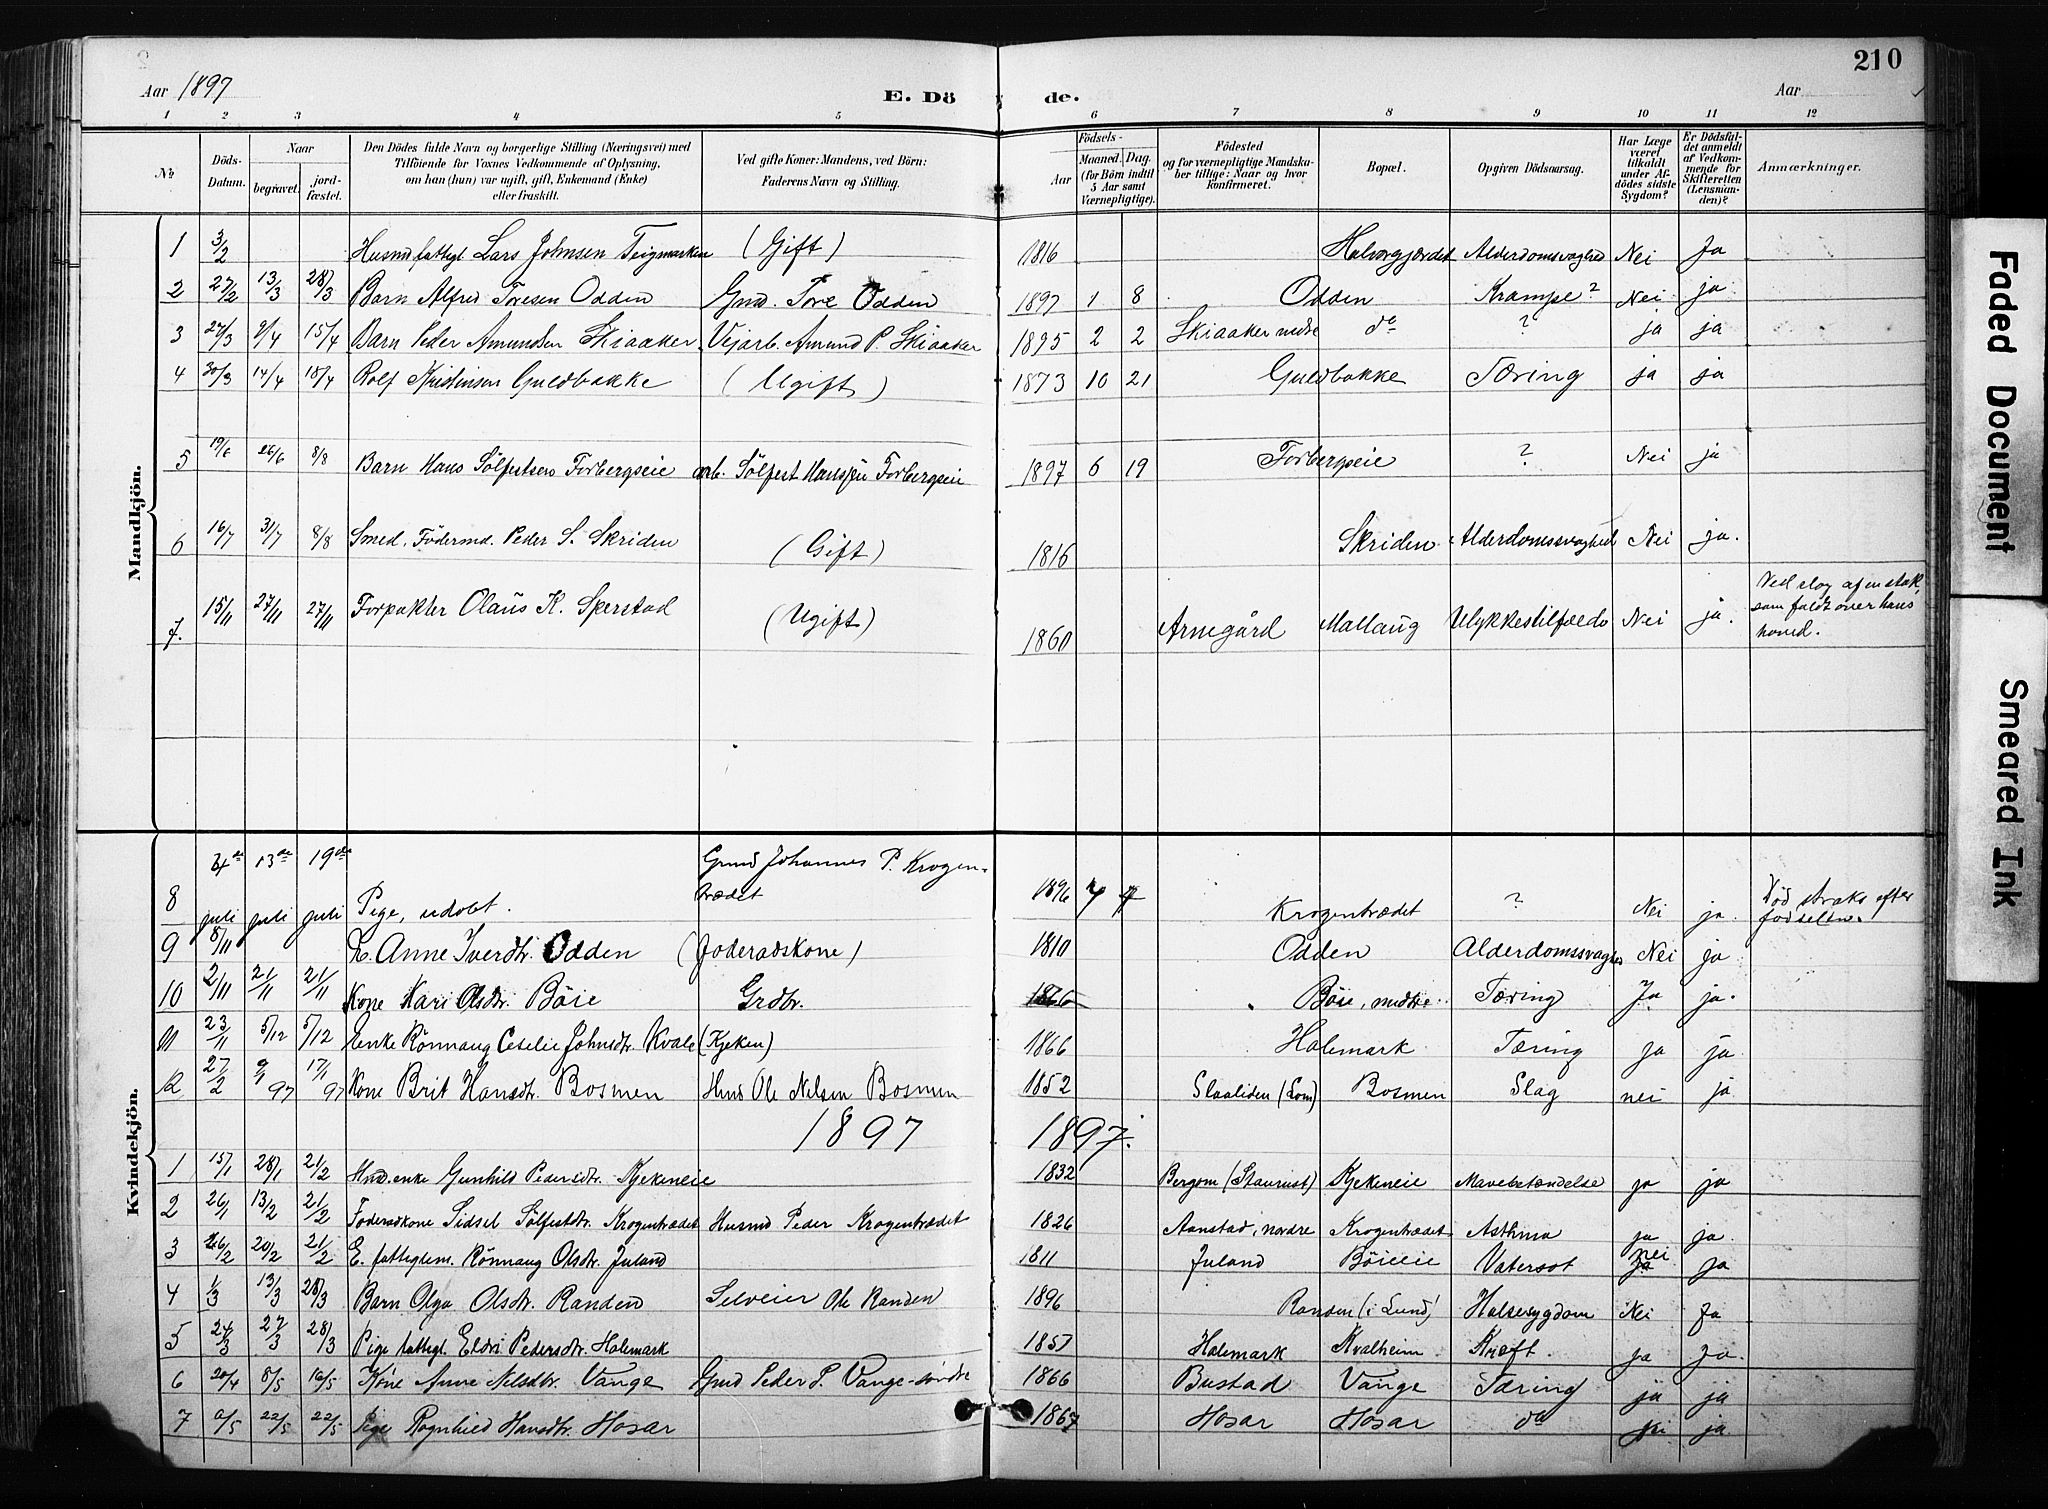 210
Aar 1897
E. Dö
de.
Aar
1 2 3 4 5 6 7 8 9 10 11 12
No
Döds-Datum.
Naar
begravet.
jord-fæstet.
Den Dödes fulde Navn og borgerlige Stilling (Næringsvei) med
Tilföiende for Voxnes Vedkommende af Oplysning,
om han (hun) var ugift, gift, Enkemand (Enke)
eller fraskilt.
Ved gifte Koner: Mandens, ved Börn:
Faderens Navn og Stilling.
Födsels-
Aar
Maaned. Dag.
(for Börn indtil
5 Aar samt
Værnepligtige).
Födested
og for værnepligtige Mandska-
ber tillige: Naar og hvor
konfirmeret.
Bopæl.
Opgiven Dödsaarsag.
Har Læge
været
tilkaldt
under Af-
dödes sidste
Sygdom?
Er Dödsfal-
det anmeldt
af Vedkom-
mende for
Skifteretten
(Lensman-
den)?
Anmærkninger.
Mandkjön.
1 3/2 Husmd fattigl. Lars Johnsen Teigmarken (Gift) 1816 Halvorgjærdet Alderdomssvaghed Nei Ja
2 27/2 13/3 28/3 Barn Alfred Toresen Odden Gmd. Tore Odden 1897 1 8 Odden Krampe? Nei ja
3 27/3 9/4 15/4 Barn Peder Amundsen Skiaaker Vejarb. Amund P. Skiaaker 1895 2 2 Skiaaker nedre do ? ja ja
4 30/3 14/4 18/4 Rolf Kristinsen Guldbakke (Ugift) 1873 10 21 Guldbakke Tæring ja ja
5 19/6 26/6 8/8 Barn Hans Sölfestsen Forbergseie arb. Sölfest Hansen Forbergseie 1897 6 19 Forbergseie ? Nei ja
6 16/7 31/7 8/8 Smed, Födermd. Peder S. Skriden (Gift) 1816 Skriden Alderdomssvaghed Nei ja.
7. 15/11 27/11 27/11 Forpakter Olaus K. Sperstad (Ugift) 1860 Arnegård Mallaug Ulykkestilfælde Nei ja.
Ved slag af en stok,
som faldt over hans
hoved.
Kvindekjön.
8 4de juli 13de juli 19de juli Pige, udöbt. Gmd Johannes P. Krogen-
trædet 1896 7 4 Krogentrædet ? Nei ja. Död straks efter
fødselen.
9 8/11 E. Anne Iverdtr. Odden (Foderadskone) 1810 Odden Alderdomssvaghed Nei ja
10 2/11 21/11 21/11 Kone Kari Olsdtr. Böie Grdbr. 1866 Böie, nedre Tæring Ja ja.
11 23/11 5/12 5/12 Enke Rönnaug Cecelie Johnsdtr. Kvale (Kjeken) 1866 Holemark Tæring ja ja
12 27/2 9/1 97 17/1 97 Kone Brit Hansdtr. Bosmen Hmd Ole Nelsen Bosmen 1852 Slaaliden (Lom) Bosmen Slag nei ja
1897 1897.
1 15/1 28/1 21/2 Hmd.enke Gunhild Pedersdtr. Kjekeneie 1832 Bergom (Staurust) Kjekeneie Mavebetændelse ja ja
2 26/1 13/2 21/2 Foderadkone Sidsel Sölfestdtr. Krogentrædet Husmd Peder Krogentrædet 1826 Aanstad, nordre Krogentrædet Asthma ja ja.
3 16/2 20/2 21/2 E. fattiglem. Rönnaug Olsdtr. Juland 1811 Juland Böieeie Vatersot nei ja
4 1/3 13/3 28/3 Barn Olga Olsdtr. Randen Selveier Ole Randen 1896 Randen (i Lund) Halssygdom Nei Ja
5 24/3 27/3 28/3 Pige fattigl. Eldri Pedersdtr. Holemark 1857 Holemark Kvalheim Kræft. ja ja.
6 20/4 8/5 16/5 Kone Anne Nelsdtr. Vange Gmd Peder P. Vange-söndre 1866 Bustad Vange Tæring ja ja
7 9/5 22/5 22/5 Pige Rognhild Hansdtr. Hosar 1867 Hosar Hosar do Nei ja
Faded Document
Smeared Ink